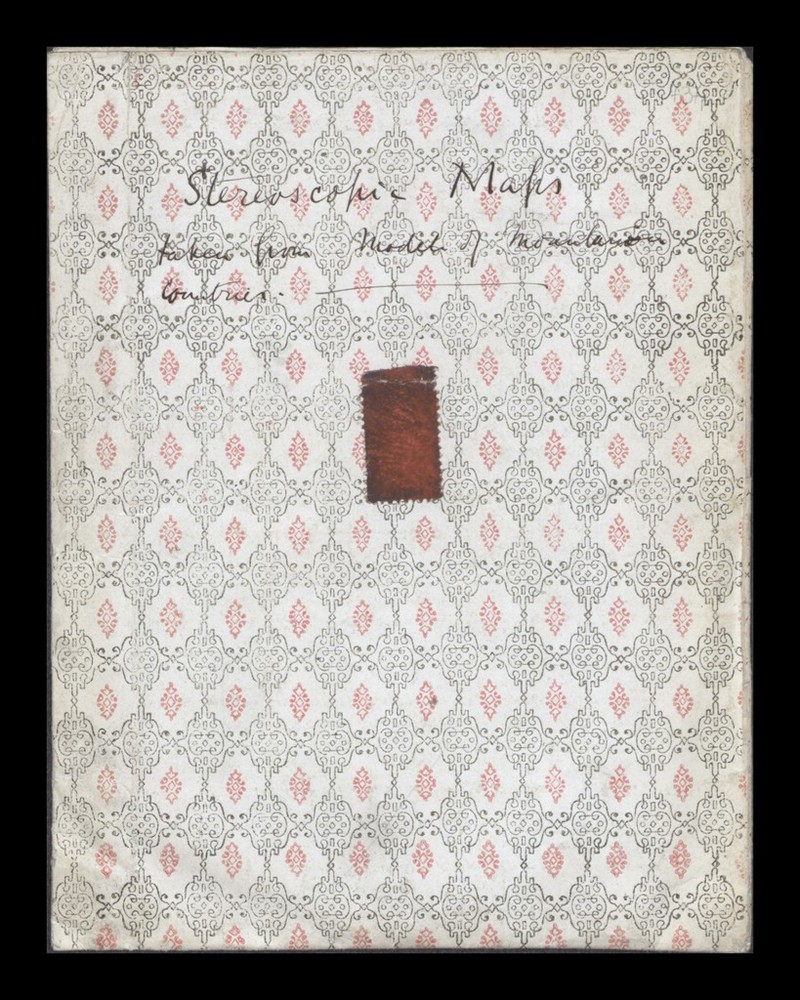 Stereoscopic Maps
taken from Models of Mountainous
Countries.